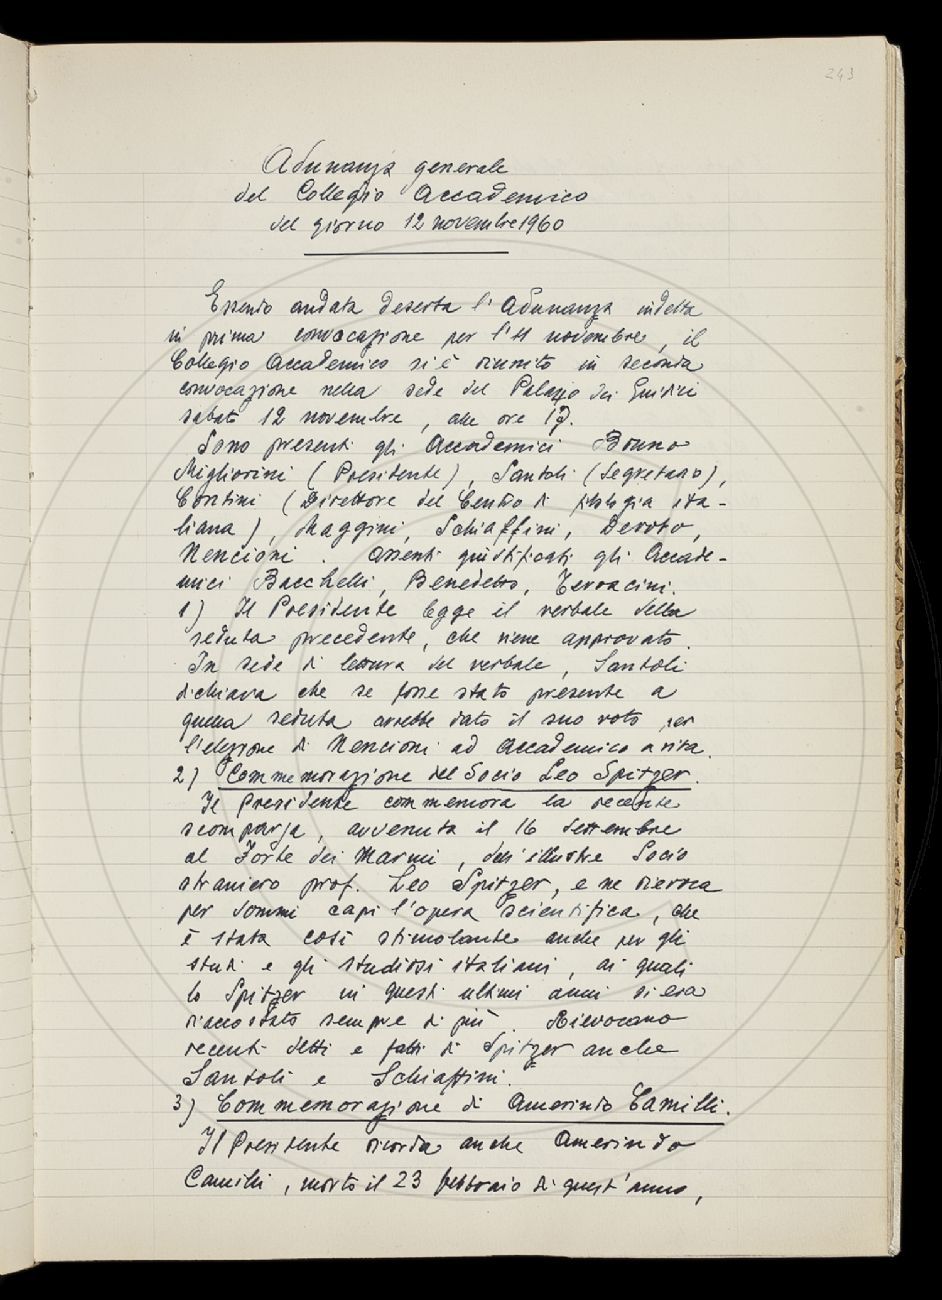 243
Adunanza generale
del Collegio Accademico
del giorno 12 novembre 1960
Essendo andata deserta l'Adunanza indetta
in prima convocazione per l'11 novembre, il
Collegio Accademico si è riunito in seconda
convocazione nella sede del Palazzo dei Giudici
sabato 12 novembre, alle ore 17.
Sono presenti gli Accademici Bruno
Migliorini (Presidente), Santoli (Segretario),
Contini (Direttore del Centro di filologia ita-
liana), Maggini, Schiaffini, Devoto,
Nencioni. Assenti giustificati gli Accade-
mici Bacchelli, Benedetto, Terracini.
1) Il Presidente legge il verbale della
seduta precedente, che viene approvato.
In sede di lettura del verbale, Santoli
dichiara che se fosse stato presente a
quella seduta avrebbe dato il suo voto per
l'elezione di Nencioni ad Accademico a vita.
2) Commemorazione del Socio Leo Spitzer.
Il Presidente commemora la recente
scomparsa, avvenuta il 16 settembre
al Forte dei Marmi, dell'illustre Socio
straniero prof. Leo Spitzer, e ne rievoca
per sommi capi l'opera scientifica, che
è stata così stimolante anche per gli
studi e gli studiosi italiani, ai quali
lo Spitzer in questi ultimi anni si era
riaccostato sempre di più. Rievocano
recenti detti e fatti di Spitzer anche
Santoli e Schiaffini.
3) Commemorazione di Amerindo Camilli.
Il Presidente ricorda anche Amerindo
Camilli, morto il 23 febbraio di quest'anno,